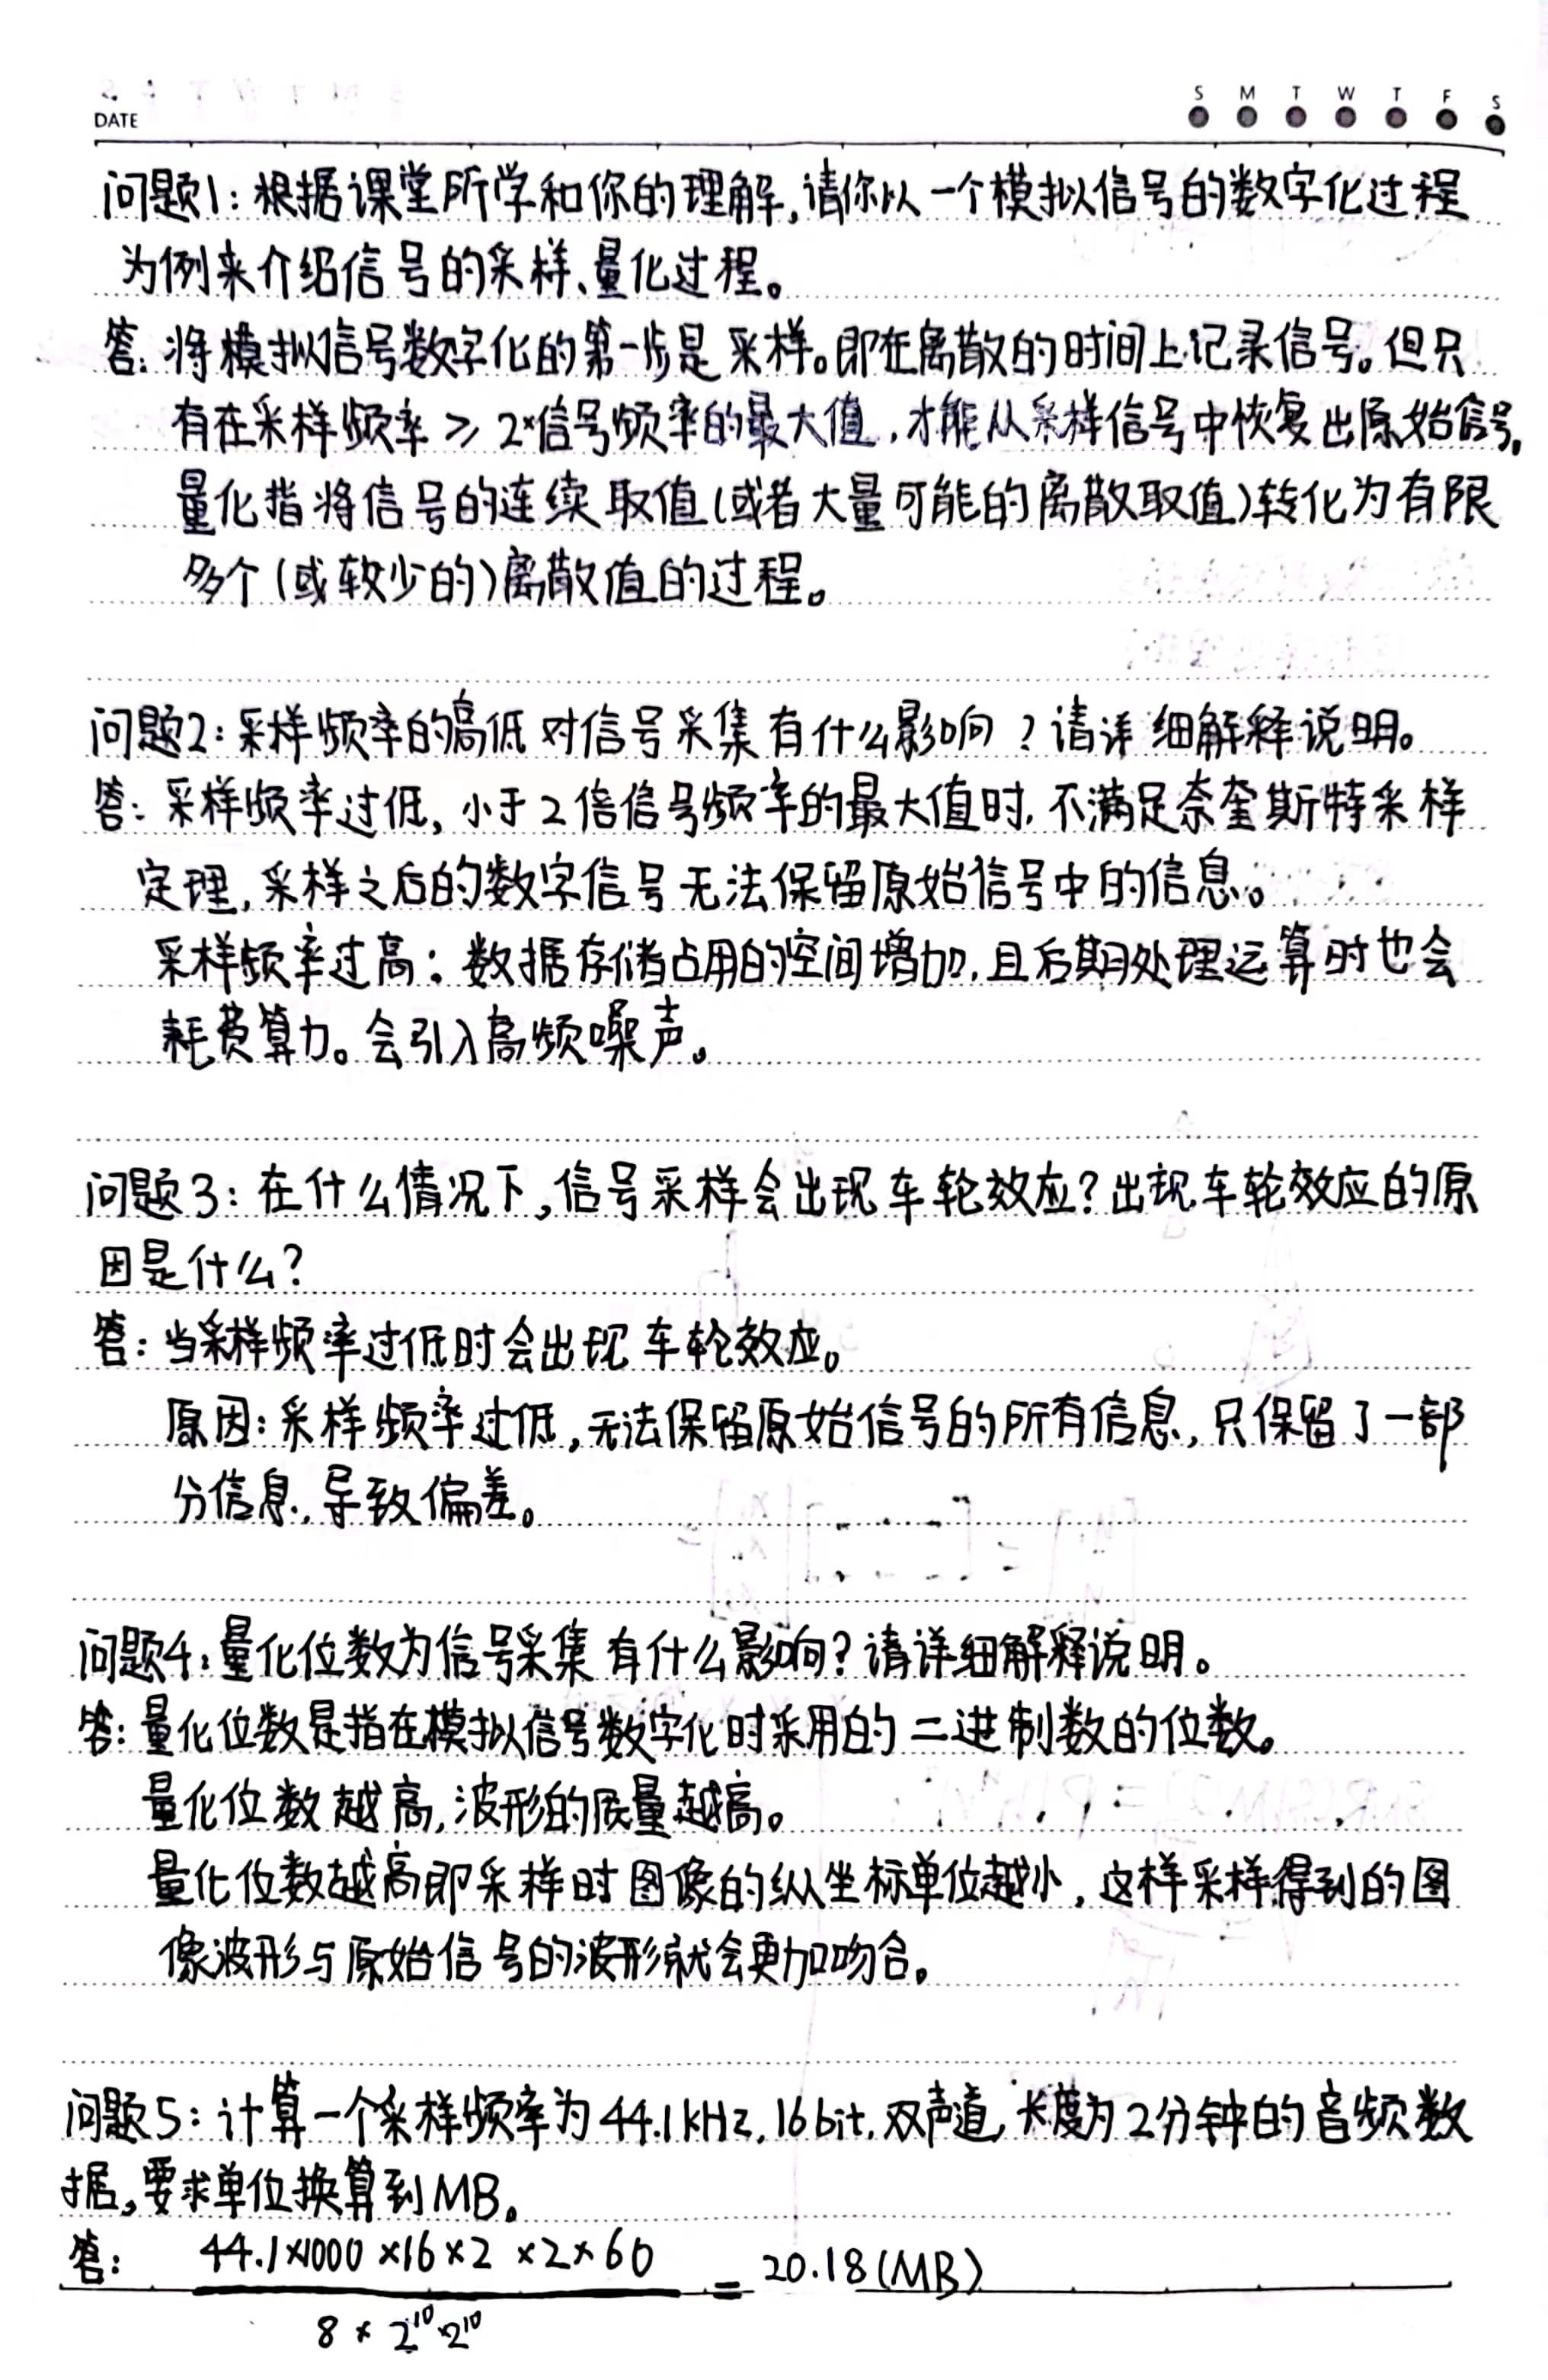 DATE
S M T W T F S
问题1:根据课堂所学和你的理解,请你以一个模拟信号的数字化过程
为例来介绍信号的采样、量化过程。
答:将模拟信号数字化的第一步是采样。即在离散的时间上记录信号。但只
有在采样频率≥2×信号频率的最大值,才能从采样信号中恢复出原始信号。
量化指将信号的连续取值(或者大量可能的离散取值)转化为有限
多个(或较少的)离散值的过程。
问题2:采样频率的高低对信号采集有什么影响?请详细解释说明。
答:采样频率过低,小于2倍信号频率的最大值时,不满足奈奎斯特采样
定理,采样之后的数字信号无法保留原始信号中的信息。
采样频率过高:数据存储占用的空间增加,且后期处理运算时也会
耗费算力。会引入高频噪声。
问题3:在什么情况下,信号采样会出现车轮效应?出现车轮效应的原
因是什么?
答:当采样频率过低时会出现车轮效应。
原因:采样频率过低,无法保留原始信号的所有信息,只保留了一部
分信息,导致偏差。
问题4:量化位数为信号采集有什么影响?请详细解释说明。
答:量化位数是指在模拟信号数字化时采用的二进制数的位数。
量化位数越高,波形的质量越高。
量化位数越高即采样时图像的纵坐标单位越小,这样采样得到的图
像波形与原始信号的波形就会更加吻合。
问题5:计算一个采样频率为44.1kHz,16bit,双声道,长度为2分钟的音频数
据,要求单位换算到MB。
答: 44.1×1000×16×2×2×60
= 20.18(MB)
8×2¹⁰×2¹⁰